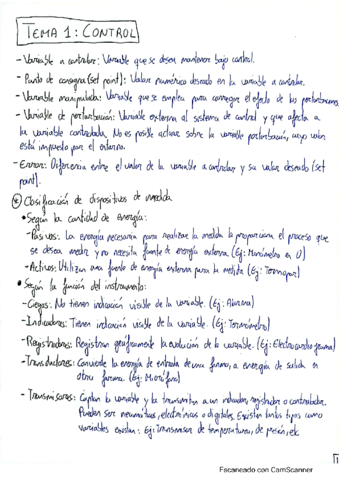 TEMA 1: CONTROL
- Variable a controlar: Variable que se desea mantener bajo control.
- Punto de consigna (set point): Valor numérico deseado en la variable a controlar.
- Variable manipulada: Variable que se emplea para corregir el efecto de las perturbaciones.
- Variable de perturbación: Variable externa al sistema de control y que afecta a
la variable controlada. No es posible actuar sobre la variable perturbación, cuyo valor
está impuesto por el entorno.
- Error: Diferencia entre el valor de la variable a controlar y su valor deseado (set
point).
Clasificación de dispositivos de medida
• Según la cantidad de energía:
- Pasivos: La energía necesaria para realizar la medida la proporciona el proceso que
se desea medir y no necesita fuente de energía externa. (Ej: Manómetro en U)
- Activos: Utilizan una fuente de energía externa para la medida (Ej: Termopar)
• Según la función del instrumento:
- Ciegos: No tienen indicación visible de la variable. (Ej: Alarma)
- Indicadores: Tienen indicación visible de la variable. (Ej: Termómetro)
- Registradores: Registran gráficamente la evolución de la variable. (Ej: Electrocardiograma)
- Transductores: Convierte la energía de entrada de una forma, a energía de salida en
otra forma. (Ej: Micrófono)
- Transmisores: Captan la variable y la transmiten a un indicador, registrador o controlador.
Pueden ser neumáticos, electrónicos o digitales. Existen tantos tipos como
variables existan: Ej: Transmisor de temperaturas, de presión, etc
1
Escaneado con CamScanner